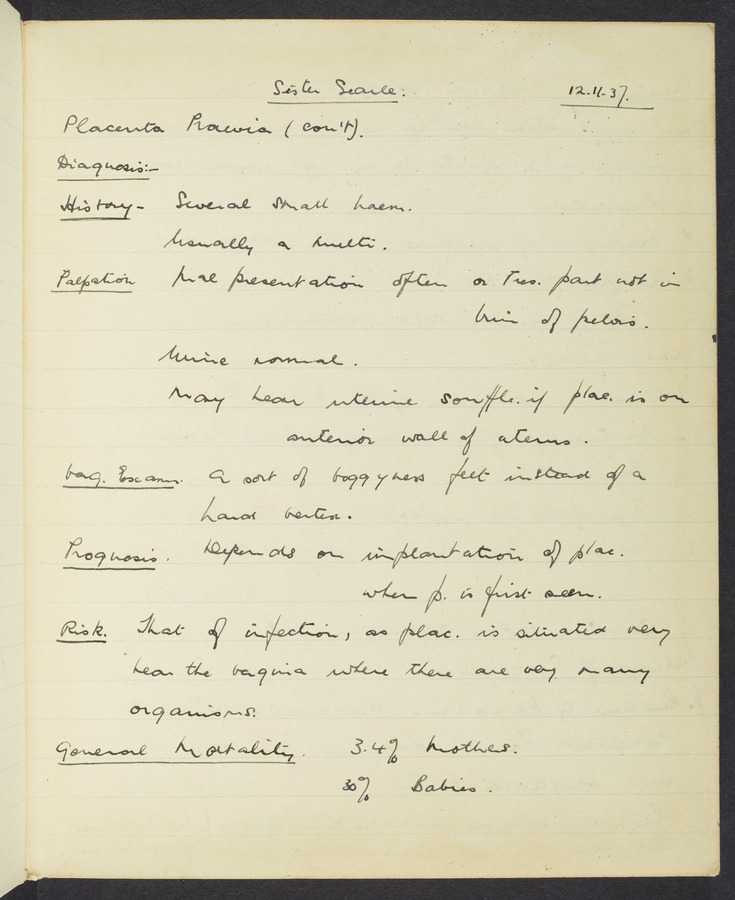 Sister Searle. 12.11.37.
Placenta Praevia (con't).
Diagnosis:-
History - Several small haem.
Usually a multi.
Palpation Mal presentation often or Pres. part not in
brim of pelvis.
Urine normal.
May hear uterine souffle if plac. is on
anterior wall of uterus.
Vag. Exam. A sort of boggyness felt instead of a
hard vertex.
Prognosis. Depends on implantation of plac.
when p. is first seen.
Risk. That of infection, as plac. is situated very
near the vagina where there are very many
organisms.
General Mortality. 3.4% Mothers.
30% Babies.